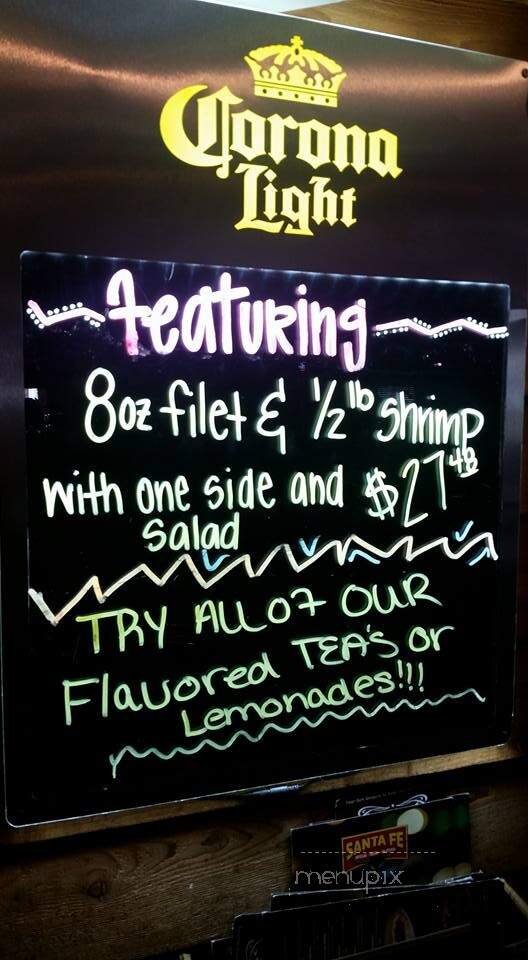 Corona
Light
Featuring
8oz filet & 1/2 lb shrimp
with one side and $27.48
salad
TRY ALL OF OUR
Flavored TEA'S or
Lemonades!!!
SANTA FE
menupix